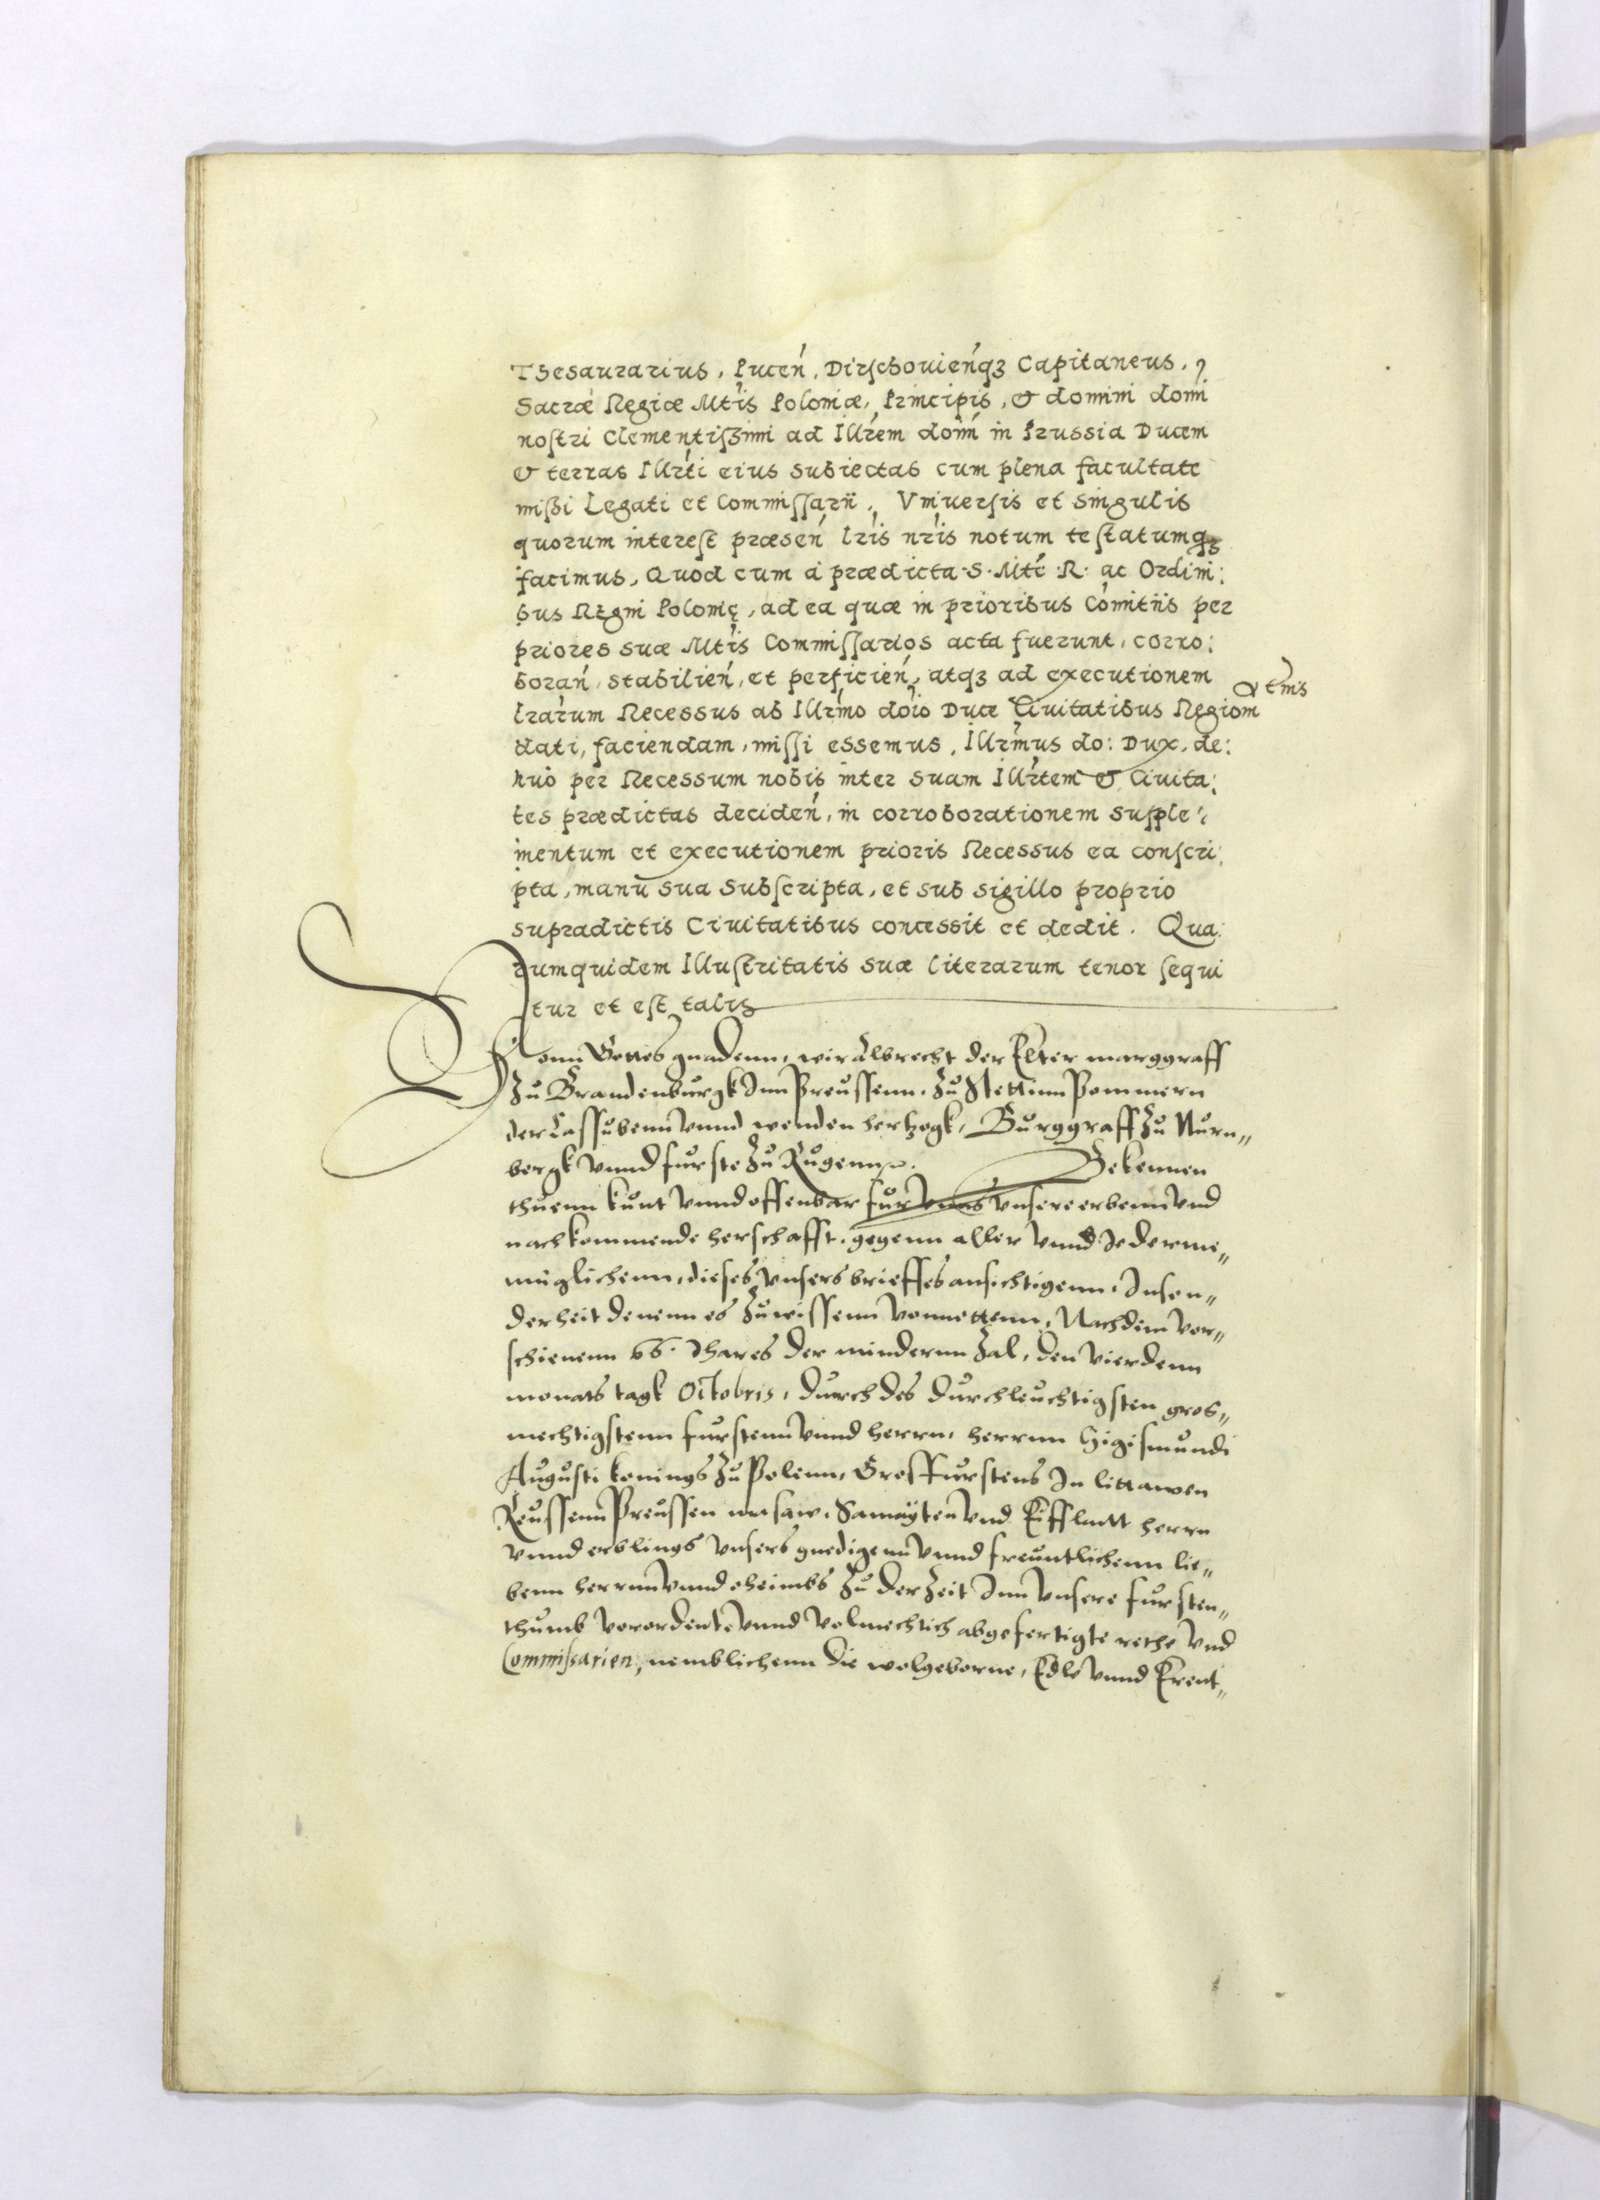 Thesaurarius, Pucen̄, Dirschouien̄qꝫ Capitaneus,
Sacræ Regiæ Mtis Poloniæ, Principis, & domini domi
nostri Clementissimi ad Illrem dom̄ in Prussia Ducem
& terras Illrti eius subiectas cum plena facultate
missi Legati et Commissarii, Vniuersis et singulis
quorum interest præsen̄ lris nr̄is notum testatumqꝫ
facimus, Quod cum à prædicta S. Mte R. ac Ordini:
bus Regni Polonię, ad ea quæ in prioribus Comitiis per
priores suæ Mtis Commissarios acta fuerunt, corro:
boran̄, stabilien̄, et perficien̄, atqꝫ ad executionem
lrarum Recessus ab Illrmo doīo Duce Ciuitatibus Regiom
dati, faciendam, missi essemus, Illrmus do: Dux, de:
nuò per Recessum nobis inter suam Illrtem & Ciuita:
tes prædictas deciden̄, in corroborationem supple:
mentum et executionem prioris Recessus ea conscri:
pta, manu sua subscripta, et sub sigillo proprio
supradictis Ciuitatibus concessit et dedit. Qua:
rumquidem Illustritatis suæ literarum tenor sequi
tur et est talis
Vonn Gottes gnadenn, wir Albrecht der Elter marggraff
Zu Brandenburgk Inn Preussenn, Zu Stettinn Pommern
der Cassubenn vnnd wenden hertzogk, Burggraff Zu Nurn„
bergk vnnd furste Zu Rugenn. Bekennen
thuenn kunt vnnd offenbar fur vnns vnsere erbenn vnd
nachkommende herschafft, gegenn aller vnnd Jederme„
niglichenn, dieses vnsers brieffes ansichtigenn, Inson„
derheit denenn es Zuwissenn vonnettenn, Nachdem vor„
schienenn 66. Jhares der mindernn Zal, den vierdenn
monats tagk Octobris, durch des durchleuchtigsten gros„
mechtigstenn furstenn vnnd herrn, herrnn Sigismundi
Augusti konings Zu Polenn, Grosfurstens In littawen
Reussenn Preussen masaw, Samayten vnd Eifflantt herrn
vnnd erblings vnsers gnedigenn vnnd freuntlichenn lie„
benn herrnn vnnd oheimbs Zu der Zeit Inn vnsere fursten„
thumb verordente vnnd volmechtich abgefertigte rethe vnd
Commissarien, nemblichenn die wolgeborne, Edle vnnd Erent„